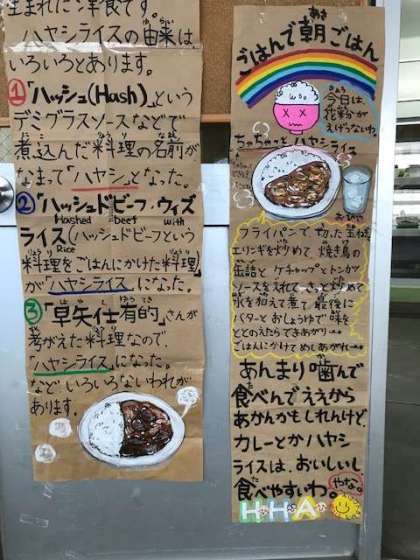 生まれた洋食です。
ハヤシライスの由来は
いろいろとあります。
① 「ハッシュ(Hash)」という
デミグラスソースなどで
煮込んだ料理の名前が
なまって「ハヤシ」となった。
② 「ハッシュドビーフ・ウィズ
Hashed Beef With
ライス(ハッシュドビーフという
Rice
料理をごはんにかけた料理)
が「ハヤシライス」になった。
③ 「早矢仕有的」さんが
考がえた料理なので、
「ハヤシライス」になった。
などいろいろないわれが
あります。
ごはんで朝ごはん
今日は、
花粉が
えげつないわ。
ちゃちゃっとハヤシライス
おひや
フライパンで切った玉ねぎ
エリンギを炒めて、焼き鳥の
缶詰とケチャップとトンカツ
ソースを入れてさっと炒めて
水を加えて煮て最後に
バターとおしょうゆで味を
ととのえたらできあがり
ごはんにかけてめしあがれ
あんまり噛んで
食べんでええから
あかんかもしれんけど、
カレーとかハヤシ
ライスは、おいしいし
食べやすいわ。やな。
H・H・A